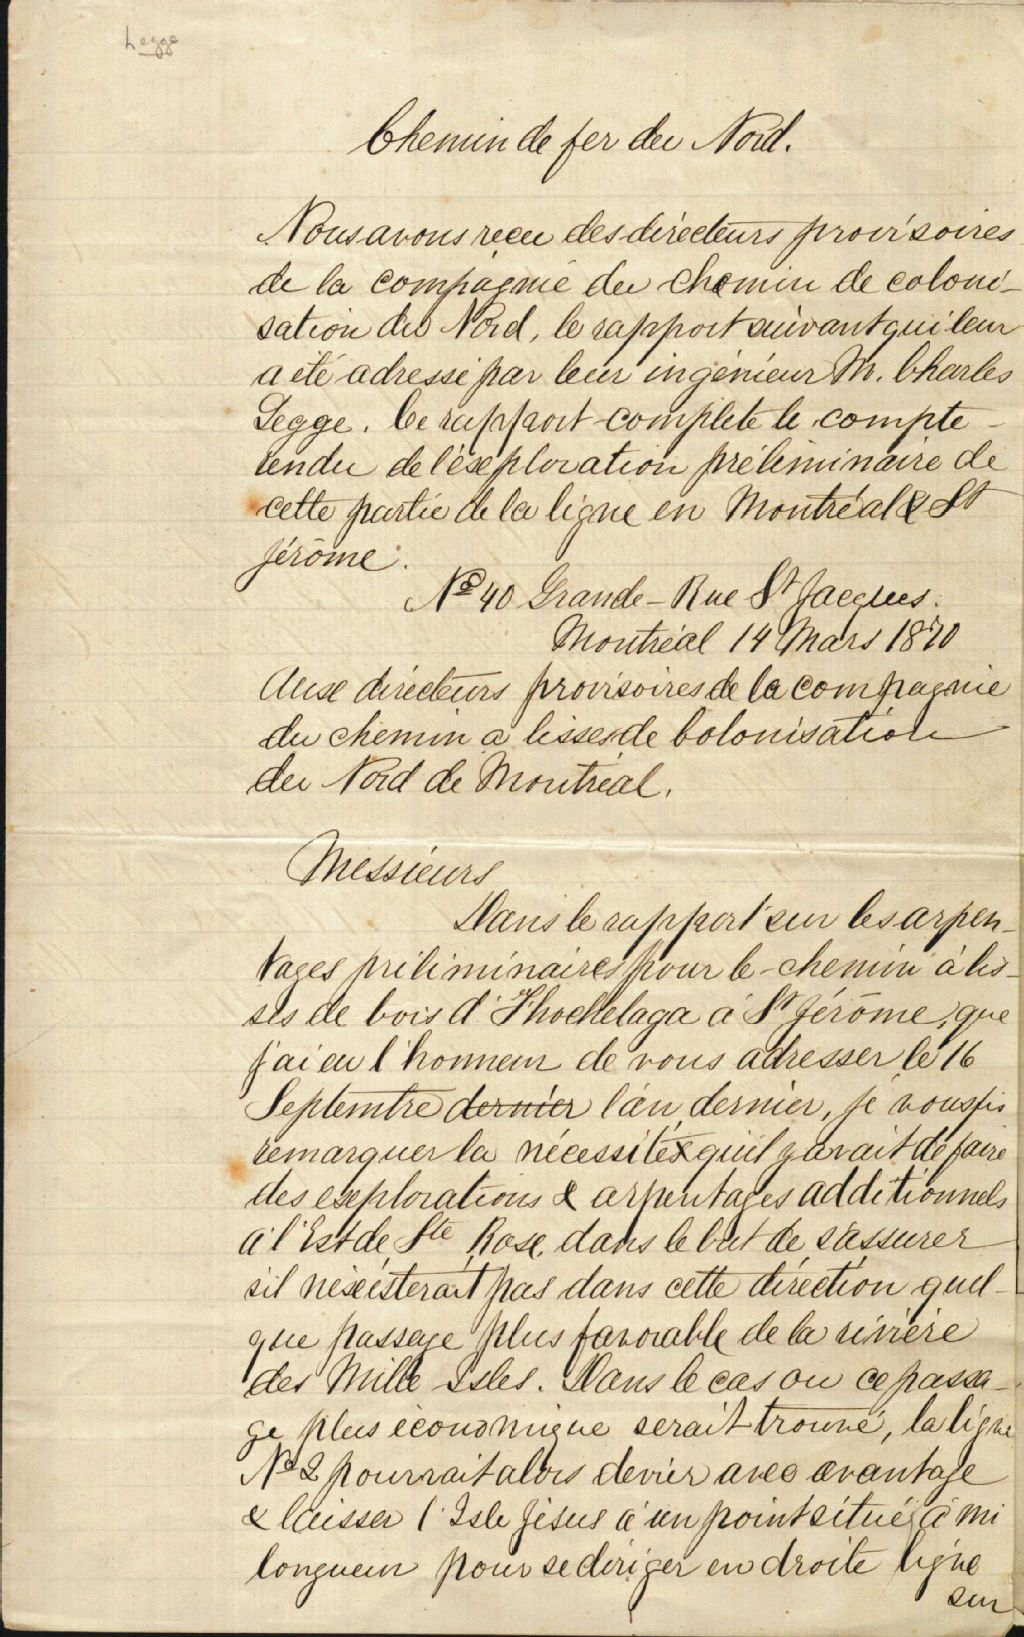 Legge
Chemin de fer du Nord.
Nous avons reçu des directeurs provisoires
de la compagnie du chemin de coloni-
sation du Nord, le rapport suivant qui leur
a été adressé par leur ingénieur M. Charles
Legge. Ce rapport complète le compte-
rendu de l'exploration préliminaire de
cette partie de la ligne en Montréal & St
Jérôme.
No 40 Grande-Rue St Jacques.
Montréal 14 Mars 1870
Aux directeurs provisoires de la compagnie
du chemin a lisses de Colonisation
du Nord de Montréal.
Messieurs
Dans le rapport sur les arpen-
tages préliminaires pour le chemin à lis-
ses de bois d'Hochelaga à St Jérôme, que
j'ai eu l'honneur de vous adresser le 16
Septembre dernier l'an dernier, je vous fis
remarquer la nécessité qu'il y avait de faire
des explorations & arpentages additionnels
à l'Est de Ste Rose, dans le but de s'assurer
s'il n'éxisterait pas dans cette direction quel-
que passage plus favorable de la rivière
des Mille Isles. Dans le cas ou ce passa-
ge plus économique serait trouvé, la ligne
No 2 pourrait alors devier avec avantage
& laisser l'Isle Jésus à un point situé à mi
longueur pour se diriger en droite ligne
sur